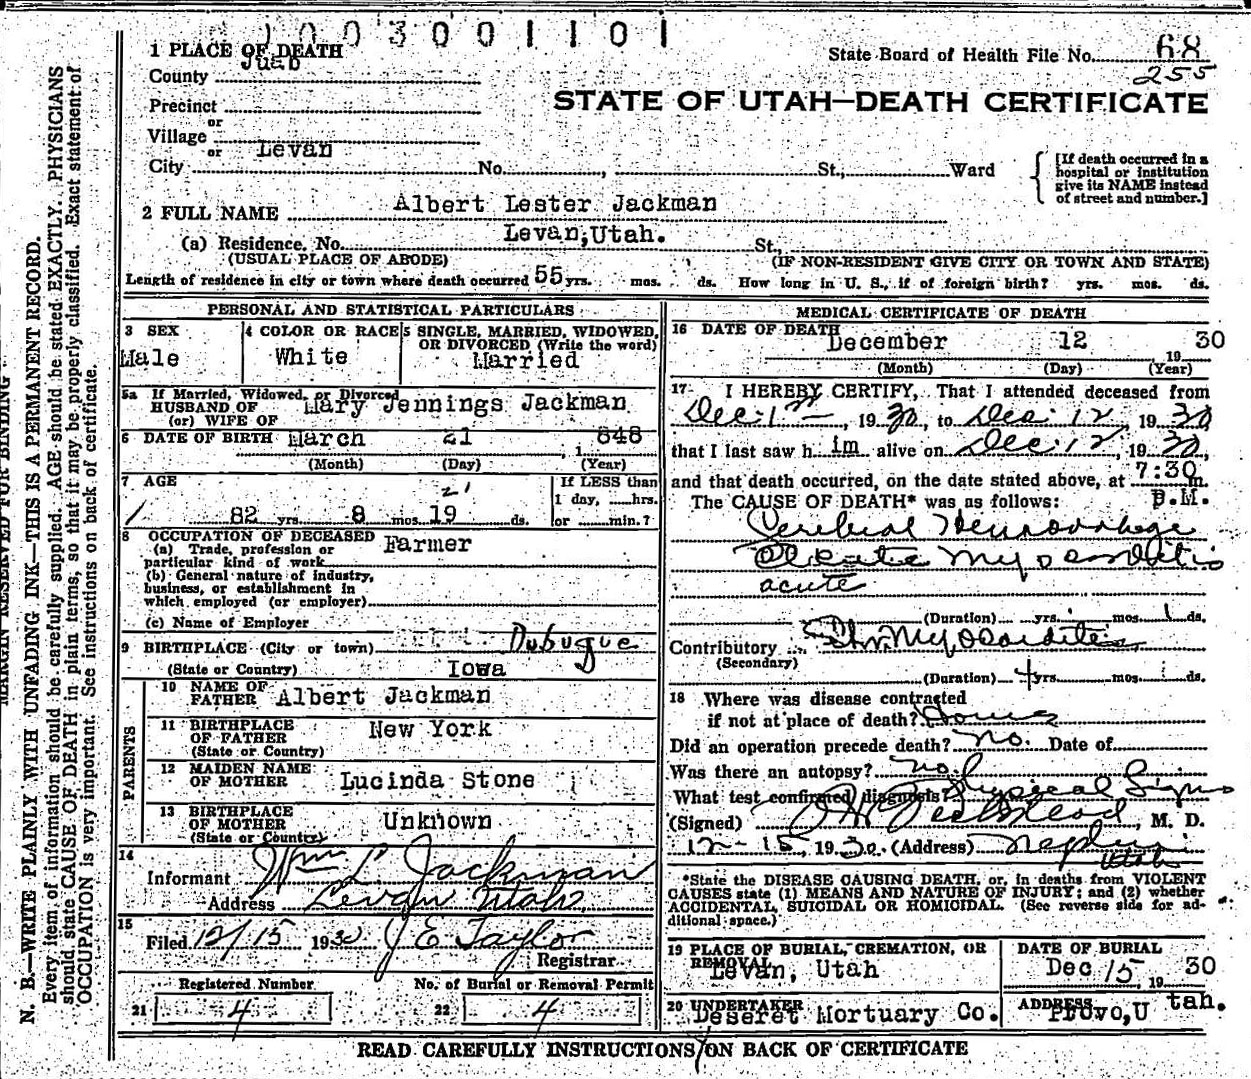 1003001101
1 PLACE OF DEATH
State Board of Health File No. 68
County Juab
255
Precinct
STATE OF UTAH—DEATH CERTIFICATE
or
Village
or
City Levan No. , St., Ward
[If death occurred in a hospital or institution give its NAME instead of street and number.]
2 FULL NAME Albert Lester Jackman
(a) Residence. No. Levan, Utah. St.
(USUAL PLACE OF ABODE) (IF NON-RESIDENT GIVE CITY OR TOWN AND STATE)
Length of residence in city or town where death occurred 55 yrs. mos. ds. How long in U. S., if of foreign birth? yrs. mos. ds.
PERSONAL AND STATISTICAL PARTICULARS
3 SEX Male
4 COLOR OR RACE White
5 SINGLE, MARRIED, WIDOWED, OR DIVORCED (Write the word) Married
5a If Married, Widowed, or Divorced
HUSBAND OF
(or) WIFE OF Mary Jennings Jackman
6 DATE OF BIRTH March 21 , 1 848
(Month) (Day) (Year)
7 AGE
82 yrs. 8 mos. 19 ds.
21
If LESS than
1 day, ......hrs.
or ......min.?
8 OCCUPATION OF DECEASED Farmer
(a) Trade, profession or
particular kind of work
(b) General nature of industry,
business, or establishment in
which employed (or employer)
(c) Name of Employer
9 BIRTHPLACE (City or town) Dubuque
(State or Country) Iowa
PARENTS
10 NAME OF FATHER Albert Jackman
11 BIRTHPLACE OF FATHER (State or Country) New York
12 MAIDEN NAME OF MOTHER Lucinda Stone
13 BIRTHPLACE OF MOTHER (State or Country) Unknown
14
Informant Wm L Jackman
Address Levan Utah
15
Filed 12/15 1930 J E Taylor
Registrar
Registered Number No. of Burial or Removal Permit
21 4 22 4
MEDICAL CERTIFICATE OF DEATH
16 DATE OF DEATH
December 12 19 30
(Month) (Day) (Year)
17 I HEREBY CERTIFY, That I attended deceased from
Dec. 1st, 1930, to Dec. 12, 1930
that I last saw h im alive on Dec. 12, 1930,
and that death occurred, on the date stated above, at 7:30 m.
The CAUSE OF DEATH* was as follows: P.M.
Cerebral Hemorrhage
Myocarditis
acute
(Duration) yrs. mos. 1 ds.
Contributory Chr. Myocarditis
(Secondary)
(Duration) 4 yrs. mos. ds.
18 Where was disease contracted
if not at place of death? Home
Did an operation precede death? no. Date of
Was there an autopsy? no
What test confirmed diagnosis? Physical Signs
(Signed) , M. D.
12-15, 1930. (Address) Nephi
Utah
*State the DISEASE CAUSING DEATH, or, in deaths from VIOLENT
CAUSES state (1) MEANS AND NATURE OF INJURY; and (2) whether
ACCIDENTAL, SUICIDAL OR HOMICIDAL. (See reverse side for ad-
ditional space.)
19 PLACE OF BURIAL, CREMATION, OR REMOVAL
Levan, Utah
DATE OF BURIAL
Dec 15 19 30
20 UNDERTAKER
Deseret Mortuary Co.
ADDRESS
Provo, Utah.
READ CAREFULLY INSTRUCTIONS ON BACK OF CERTIFICATE
MARGIN RESERVED FOR BINDING
N. B.—WRITE PLAINLY WITH UNFADING INK—THIS IS A PERMANENT RECORD.
Every item of information should be carefully supplied. AGE should be stated EXACTLY. PHYSICIANS
should state CAUSE OF DEATH in plain terms, so that it may be properly classified. Exact statement of
OCCUPATION is very important. See instructions on back of certificate.